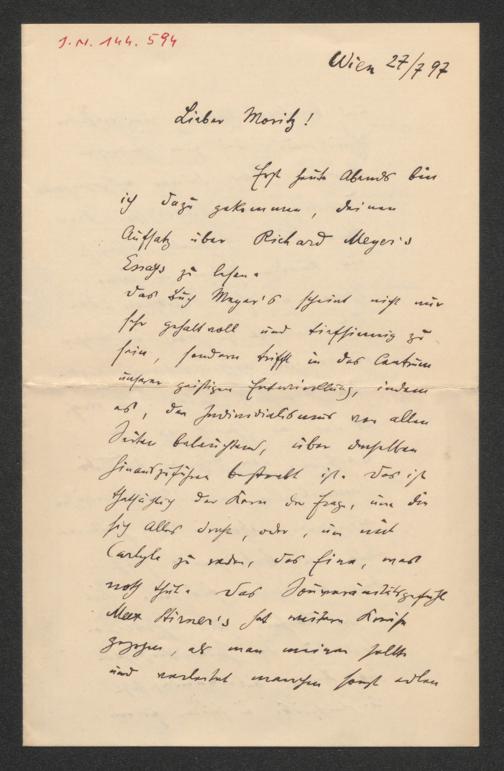 J.N. 144.594
Wien 27/7 97
Lieber Moritz!
Erst heute Abends bin
ich dazu gekommen, deinen
Aufsatz über Richard Meyer's
Essays zu lesen.
Das Buch Meyer's scheint nicht nur
sehr gehaltvoll und tiefsinnig zu
sein, sondern trifft in das Centrum
unserer geistigen Entwicklung, indem
es, den Individialismus von allen
Seiten beleuchtend, über denselben
hinauszuführen bestrebt ist. Das ist
thatsächlich der Kern der Frage, um die
sich Alles dreht, oder, um mit
Carlyle zu reden, das Eine, was
noth thut. Das Souveränitätsgefühl
Max Stirner's hat weitere Kreise
gezogen, als man meinen sollte
und verleitet manchen sonst edlen